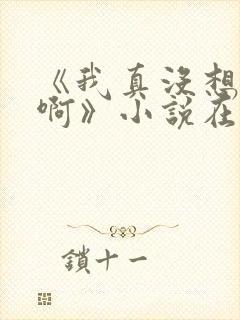 《我真没想
啊》小说在
鎖十一